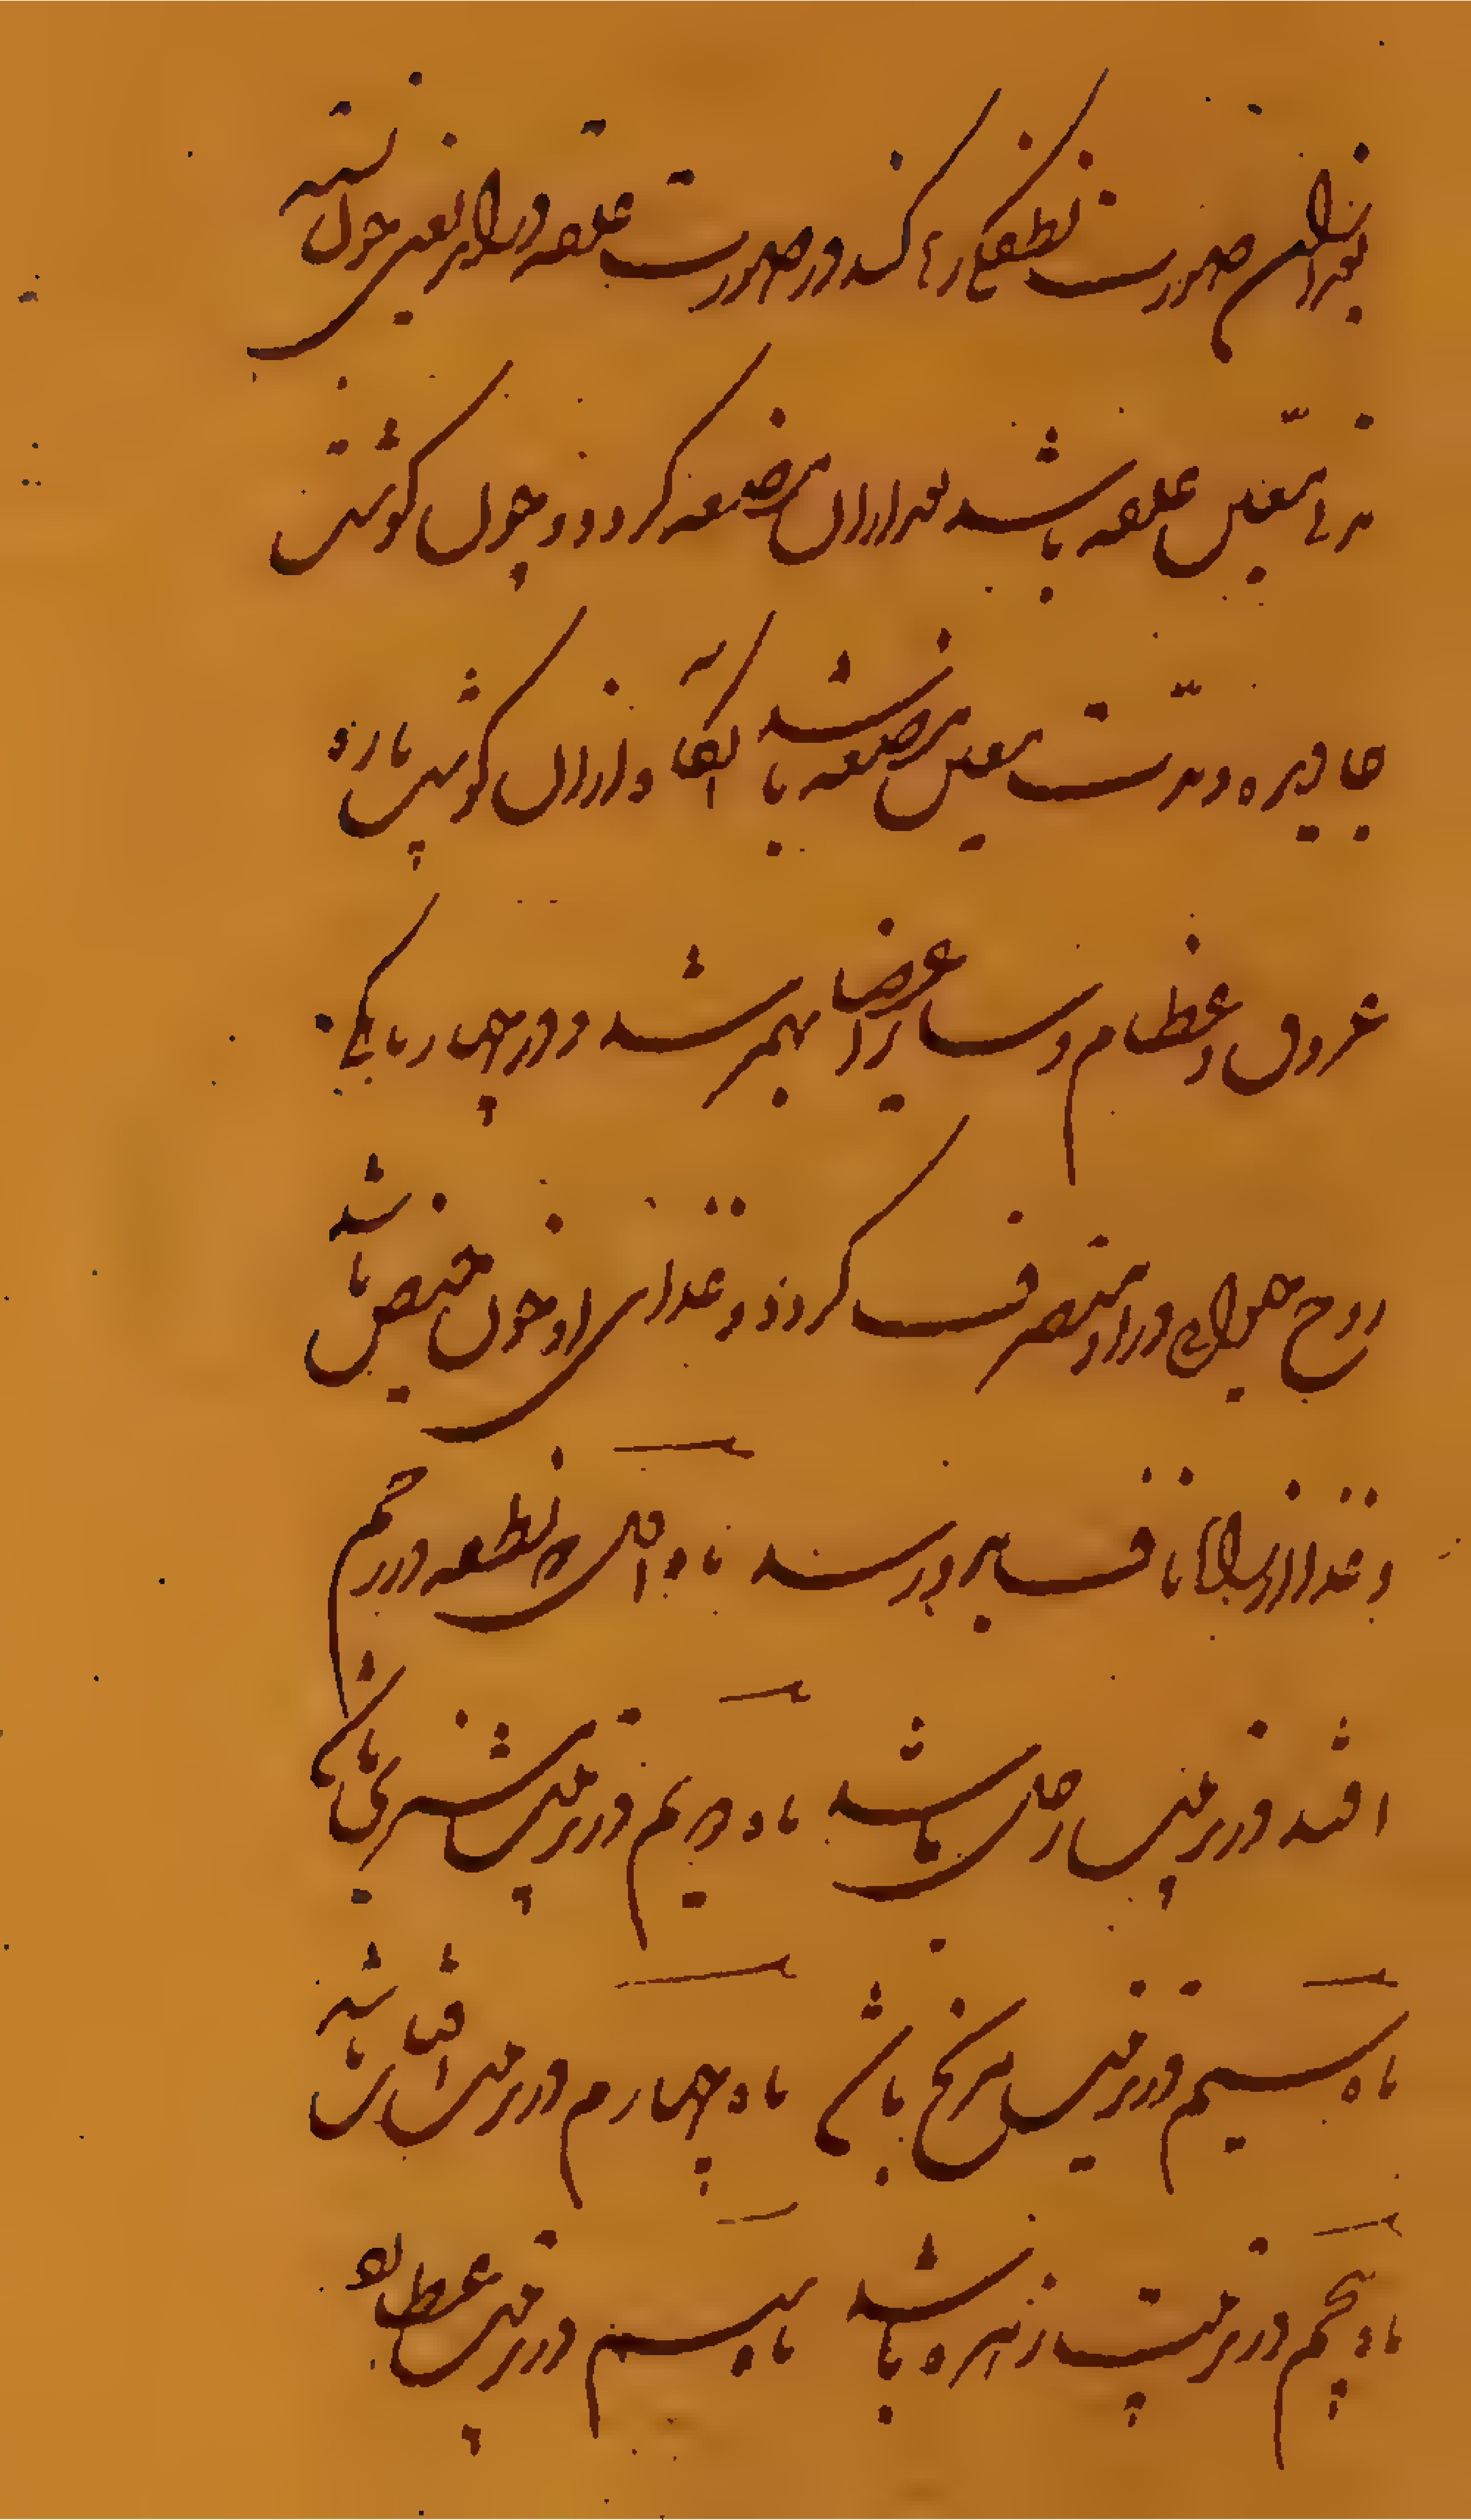 بعد از ان صورت نطفگی رها کند و در صورت علقه در اید یعنی چون خون بسته
مدتی معین علقه باشد بعد از ان مضغه گردد و چون گوشتی
خاییده و مدت معین مضغه باشد انگاه از ان گوشت پاره
عروق و عظام و سایر اعضا بهم رسد و در چهار ماهگی
روح حیوانی در او متصرف گردد و غذای او خون حیض باشد
و غذا از راه ناف بدو رسد ماه اول که نطفه در رحم
افتد در تربیت زحل باشد ماه دویم در تربیت مشتری باشد
ماه سیم در تربیت مریخ باشد ماه چهارم در تربیت افتاب باشد
ماه پنجم در تربیت زهره باشد ماه ششم در تربیت عطارد